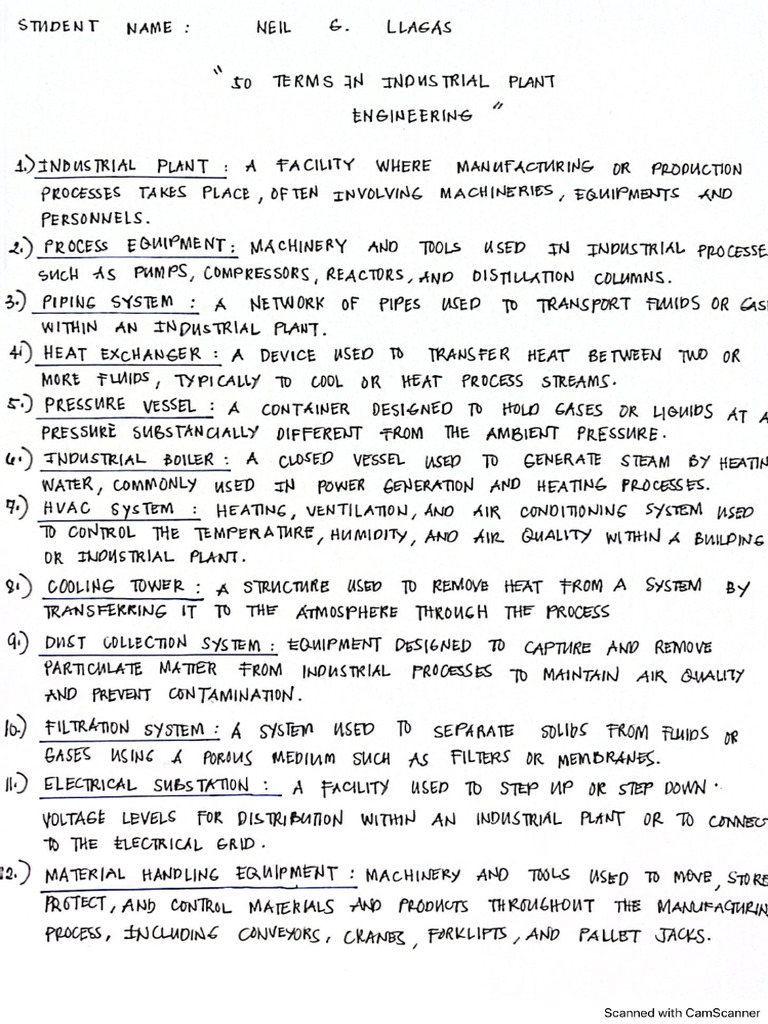 STUDENT NAME : NEIL G. LLAGAS
"50 TERMS IN INDUSTRIAL PLANT
ENGINEERING"
1.) INDUSTRIAL PLANT : A FACILITY WHERE MANUFACTURING OR PRODUCTION
PROCESSES TAKES PLACE, OFTEN INVOLVING MACHINERIES, EQUIPMENTS AND
PERSONNELS.
2.) PROCESS EQUIPMENT : MACHINERY AND TOOLS USED IN INDUSTRIAL PROCESSE
SUCH AS PUMPS, COMPRESSORS, REACTORS, AND DISTILLATION COLUMNS.
3.) PIPING SYSTEM : A NETWORK OF PIPES USED TO TRANSPORT FLUIDS OR GAS
WITHIN AN INDUSTRIAL PLANT.
4.) HEAT EXCHANGER : A DEVICE USED TO TRANSFER HEAT BETWEEN TWO OR
MORE FLUIDS, TYPICALLY TO COOL OR HEAT PROCESS STREAMS.
5.) PRESSURE VESSEL : A CONTAINER DESIGNED TO HOLD GASES OR LIQUIDS AT A
PRESSURE SUBSTANCIALLY DIFFERENT FROM THE AMBIENT PRESSURE.
6.) INDUSTRIAL BOILER : A CLOSED VESSEL USED TO GENERATE STEAM BY HEATIN
WATER, COMMONLY USED IN POWER GENERATION AND HEATING PROCESSES.
7.) HVAC SYSTEM : HEATING, VENTILATION, AND AIR CONDITIONING SYSTEM USED
TO CONTROL THE TEMPERATURE, HUMIDITY, AND AIR QUALITY WITHIN A BUILDING
OR INDUSTRIAL PLANT.
8.) COOLING TOWER : A STRUCTURE USED TO REMOVE HEAT FROM A SYSTEM BY
TRANSFERRING IT TO THE ATMOSPHERE THROUGH THE PROCESS
9.) DUST COLLECTION SYSTEM : EQUIPMENT DESIGNED TO CAPTURE AND REMOVE
PARTICULATE MATTER FROM INDUSTRIAL PROCESSES TO MAINTAIN AIR QUALITY
AND PREVENT CONTAMINATION.
10.) FILTRATION SYSTEM : A SYSTEM USED TO SEPARATE SOLIDS FROM FLUIDS OR
GASES USING A POROUS MEDIUM SUCH AS FILTERS OR MEMBRANES.
11.) ELECTRICAL SUBSTATION : A FACILITY USED TO STEP UP OR STEP DOWN
VOLTAGE LEVELS FOR DISTRIBUTION WITHIN AN INDUSTRIAL PLANT OR TO CONNEC
TO THE ELECTRICAL GRID.
12.) MATERIAL HANDLING EQUIPMENT : MACHINERY AND TOOLS USED TO MOVE, STORE
PROTECT, AND CONTROL MATERIALS AND PRODUCTS THROUGHOUT THE MANUFACTURIN
PROCESS, INCLUDING CONVEYORS, CRANES, FORKLIFTS, AND PALLET JACKS.
Scanned with CamScanner